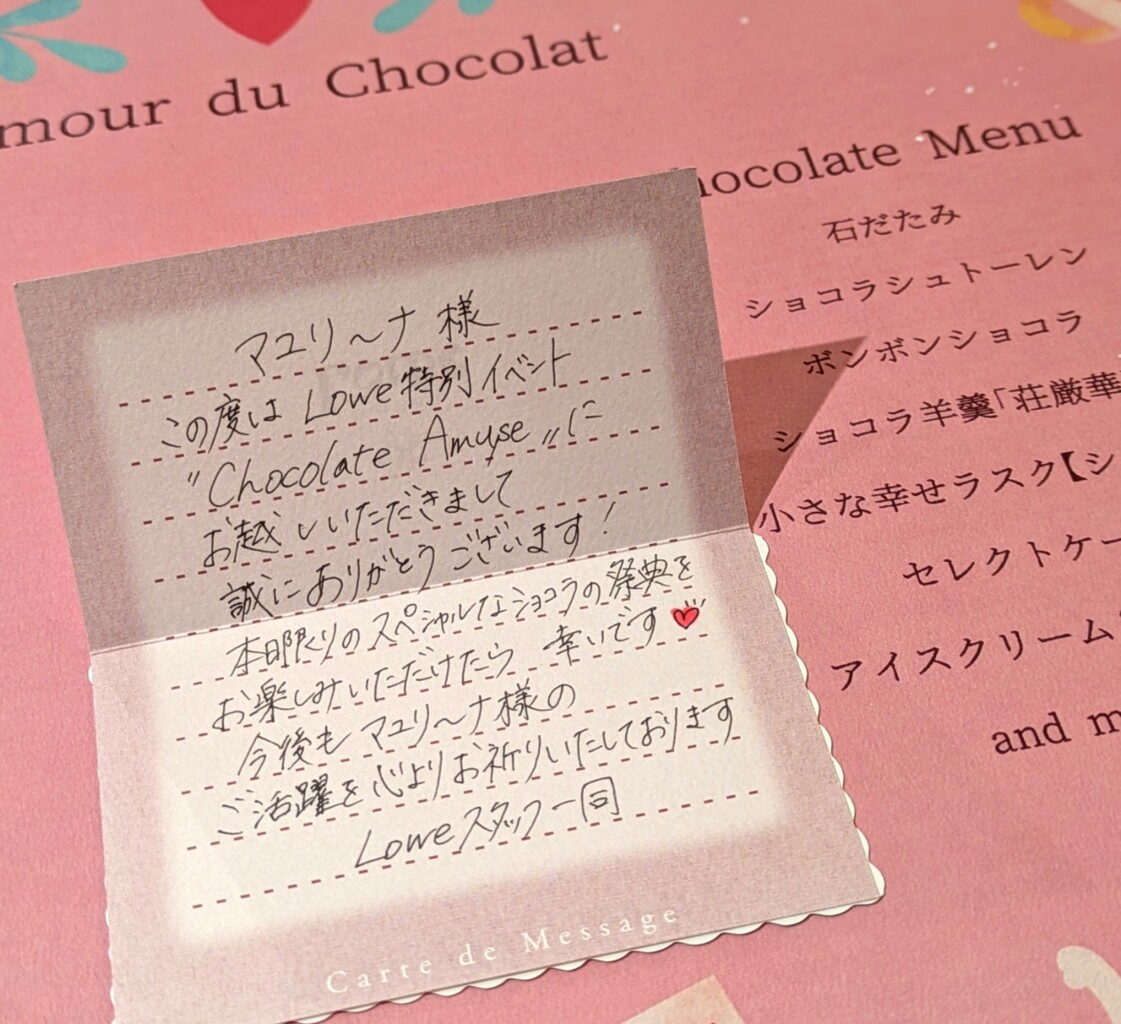 mour du Chocolat
hocolate Menu
石だたみ
ショコラシュトーレン
ボンボンショコラ
ショコラ羊羹「荘厳華
小さな幸せラスク【シ
セレクトケー
アイスクリーム
and m
マユリ〜ナ 様
この度は Lowe特別イベント
"Chocolate Amuse"に
お越しいただきまして
誠にありがとうございます!
本日限りのスペシャルなショコラの祭典を
お楽しみいただけたら 幸いです♥
今後も マユリ〜ナ様の
ご活躍を心よりお祈りいたしております
Loweスタッフ一同
Carte de Message